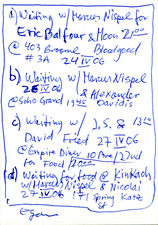 a) Waiting w/ Marcus Nispel for
Eric Balfour & Moon 21:00
@ 403 Broome Bloodgood
#3A 24 IV 06
b) Waiting w/ Marcus Nispel
26 IV 06 & Alexander
@ Soho Grand 13:45 Davidis
c) Waiting w/ J.S. & 13:40
David Fried 27 IV 06
@ Empire Diner 10 Ave / 22nd
for Food
d) Waiting for food @ Kinkhao
w/ Marcus Nispel & Nicolai
27 IV 06 171 Spring Katz
St